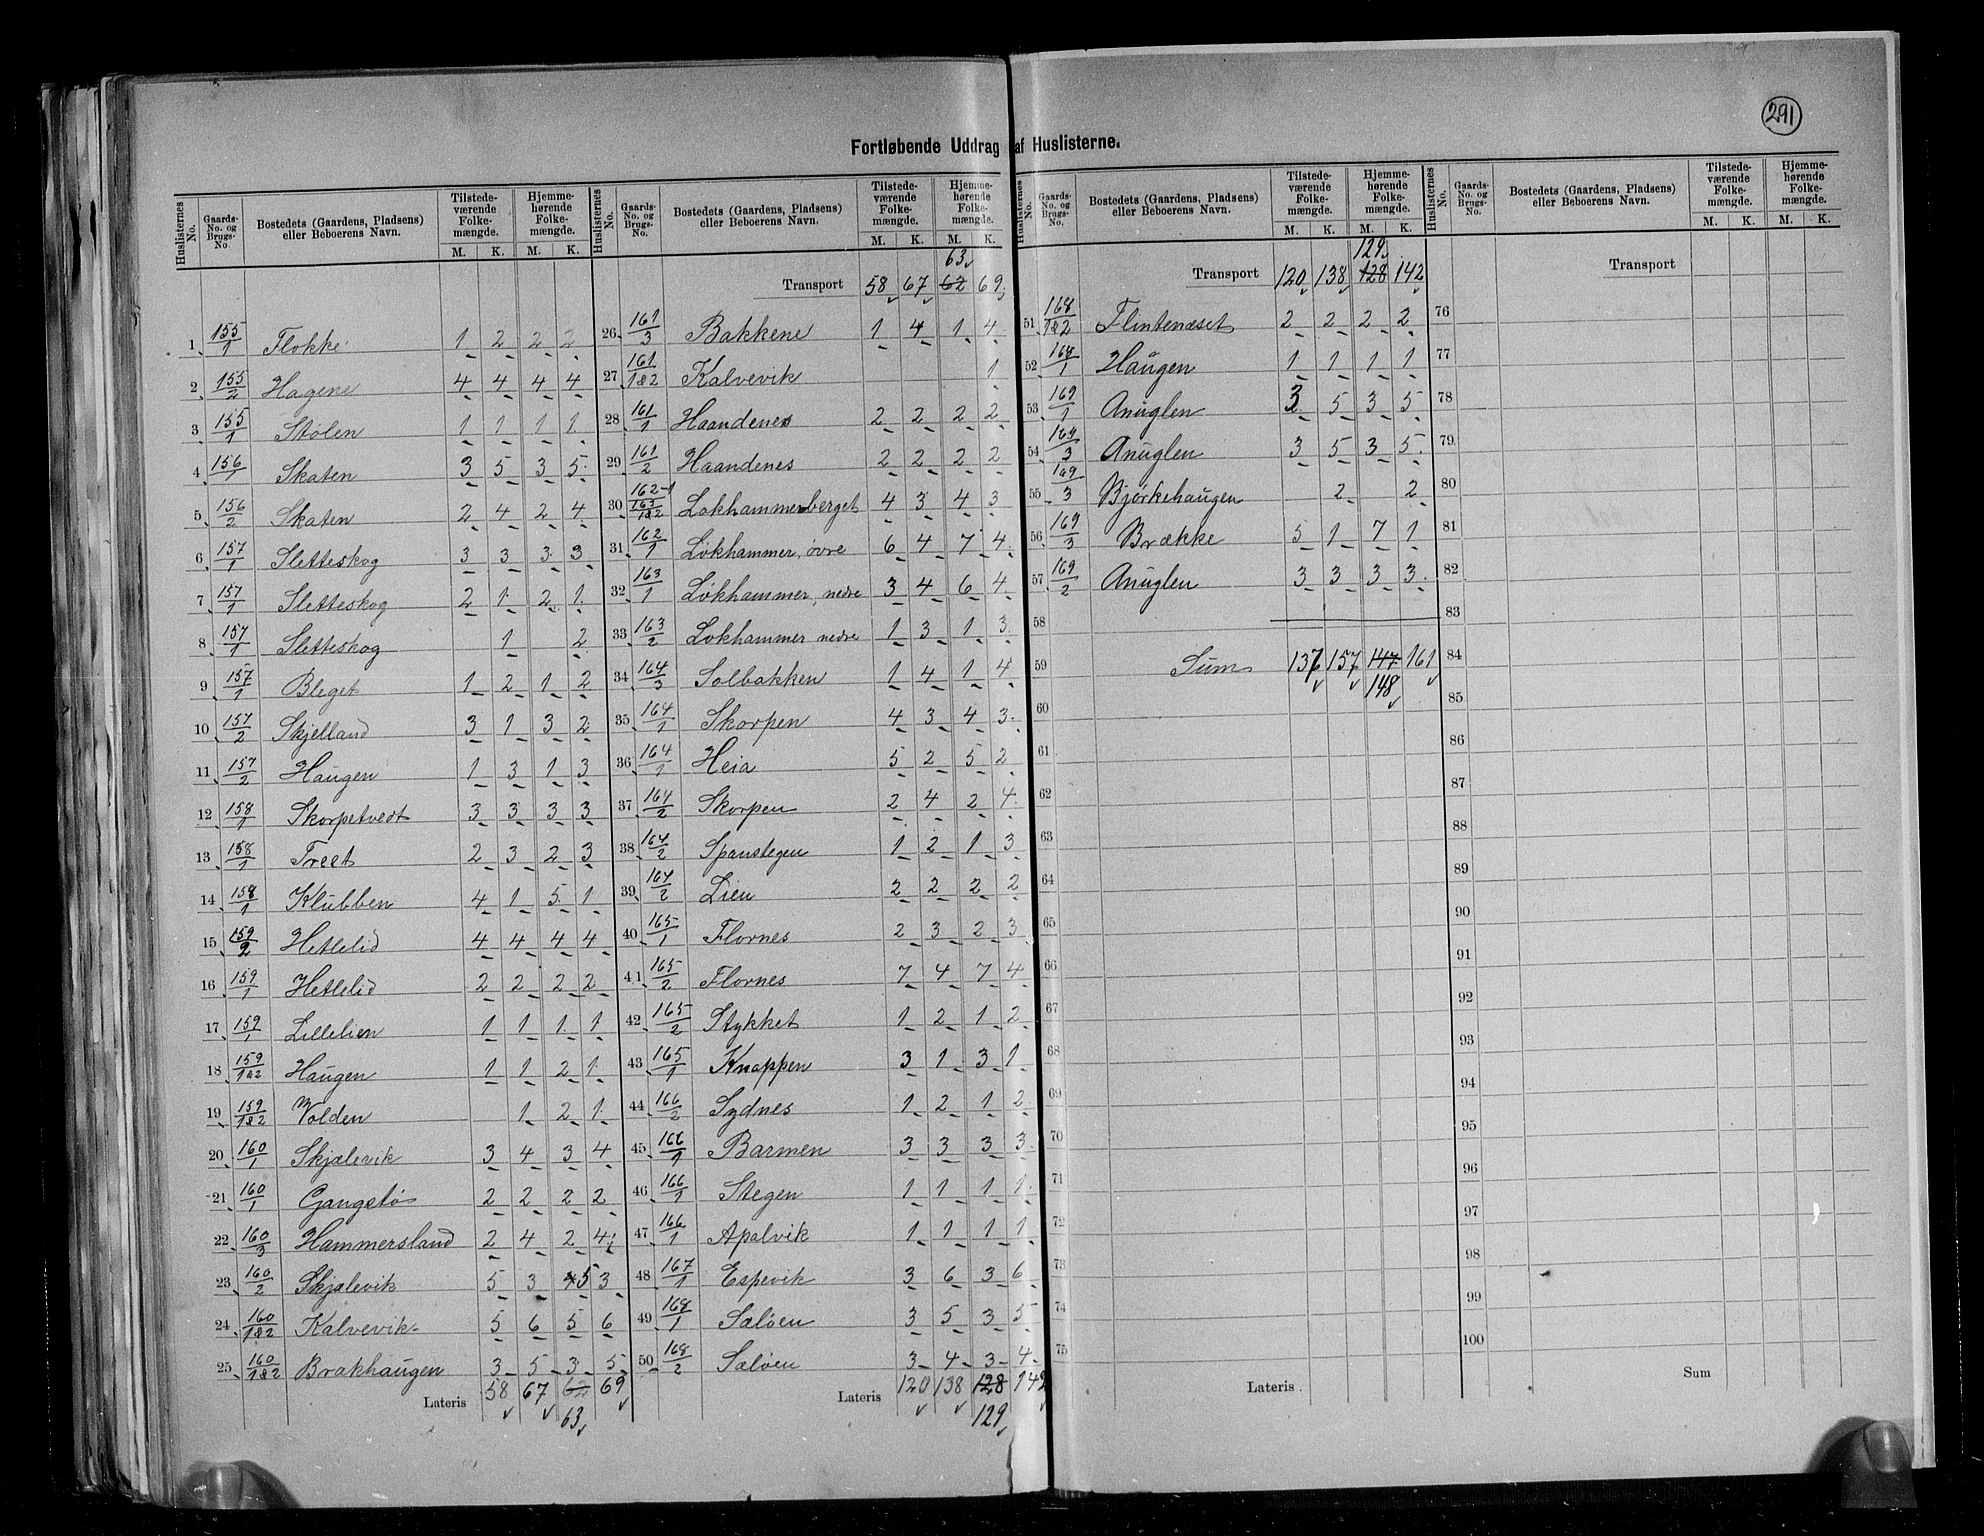 291
Fortløbende Uddrag af Huslisterne.
Huslisternes No. | Gaards-No. og Brugs-No. | Bostedets (Gaardens, Pladsens) eller Beboerens Navn. | Tilstedeværende Folkemængde. M. K. | Hjemmehørende Folkemængde. M. K.
1 155/1 Flokke 1 2 2 2
2 155/2 Hagene 4 4 4 4
3 155/1 Stølen 1 1 1 1
4 156/1 Skaten 3 5 3 5
5 156/2 Skaten 2 4 2 4
6 157/1 Sletteskog 3 3 3 3
7 157/1 Sletteskog 2 1 2 1
8 157/1 Sletteskog 1 2
9 157/1 Bleget 1 2 1 2
10 157/2 Skjelland 3 1 3 2
11 157/2 Haugen 1 3 1 3
12 158/1 Skorpetvedt 3 3 3 3
13 158/1 Treet 2 3 2 3
14 158/1 Klubben 4 1 5 1
15 159/2 Hetlelid 4 4 4 4
16 159/1 Hetlelid 2 2 2 2
17 159/1 Lillelien 1 1 1 1
18 159/1&2 Haugen 1 1 2 1
19 159/1&2 Volden 1 2 1
20 160/1 Skjælevik 3 4 3 4
21 160/1 Gangstø 2 2 2 2
22 160/3 Hammersland 2 4 2 4
23 160/2 Skjælevik 5 3 5 3
24 160/1&2 Kalvevik 5 6 5 6
25 160/1&2 Brakhaugen 3 5 3 5
Lateris 58 67 62 69
63
Huslisternes No. | Gaards-No. og Brugs-No. | Bostedets (Gaardens, Pladsens) eller Beboerens Navn. | Tilstedeværende Folkemængde. M. K. | Hjemmehørende Folkemængde. M. K.
63
Transport 58 67 62 69
26 161/3 Bakkene 1 4 1 4
27 161/1&2 Kalvevik 1
28 161/1 Haandenes 2 2 2 2
29 161/2 Haandenes 2 2 2 2
30 162-1 163/1&2 Lokhammerberget 4 3 4 3
31 162/1 Løkhammer, øvre 6 4 7 4
32 163/1 Løkhammer, nedre 3 4 6 4
33 163/2 Løkhammer nedre 1 3 1 3
34 164/3 Solbakken 1 4 1 4
35 164/1 Skorpen 4 3 4 3
36 164/1 Heia 5 2 5 2
37 164/2 Skorpen 2 4 2 4
38 164/2 Spanstegen 1 2 1 3
39 164/2 Lien 2 2 2 2
40 165/1 Flornes 2 3 2 3
41 165/2 Flornes 7 4 7 4
42 165/2 Stykket 1 2 1 2
43 165/1 Knappen 3 1 3 1
44 166/2 Sydnes 1 2 1 2
45 166/1 Barmen 3 3 3 3
46 166/1 Stegen 1 1 1 1
47 166/1 Apalvik 1 1 1 1
48 167/1 Espevik 3 6 3 6
49 168/1 Sæløen 3 5 3 5
50 168/2 Sæløen 3 4 3 4
Lateris 120 138 128 142
129
Huslisternes No. | Gaards-No. og Brugs-No. | Bostedets (Gaardens, Pladsens) eller Beboerens Navn. | Tilstedeværende Folkemængde. M. K. | Hjemmehørende Folkemængde. M. K.
129
Transport 120 138 128 142
51 168/1&2 Flintenæset 2 2 2 2
52 168/1 Haugen 1 1 1 1
53 169/1 Anuglen 3 5 3 5
54 169/3 Anuglen 3 5 3 5
55 169/3 Bjørkehaugen 2 2
56 169/3 Brække 5 1 7 1
57 169/2 Anuglen 3 3 3 3
58
59 Sum 137 157 147 161
148
60
61
62
63
64
65
66
67
68
69
70
71
72
73
74
75
Lateris
Huslisternes No. | Gaards-No. og Brugs-No. | Bostedets (Gaardens, Pladsens) eller Beboerens Navn. | Tilstedeværende Folkemængde. M. K. | Hjemmehørende Folkemængde. M. K.
Transport
76
77
78
79
80
81
82
83
84
85
86
87
88
89
90
91
92
93
94
95
96
97
98
99
100
Sum